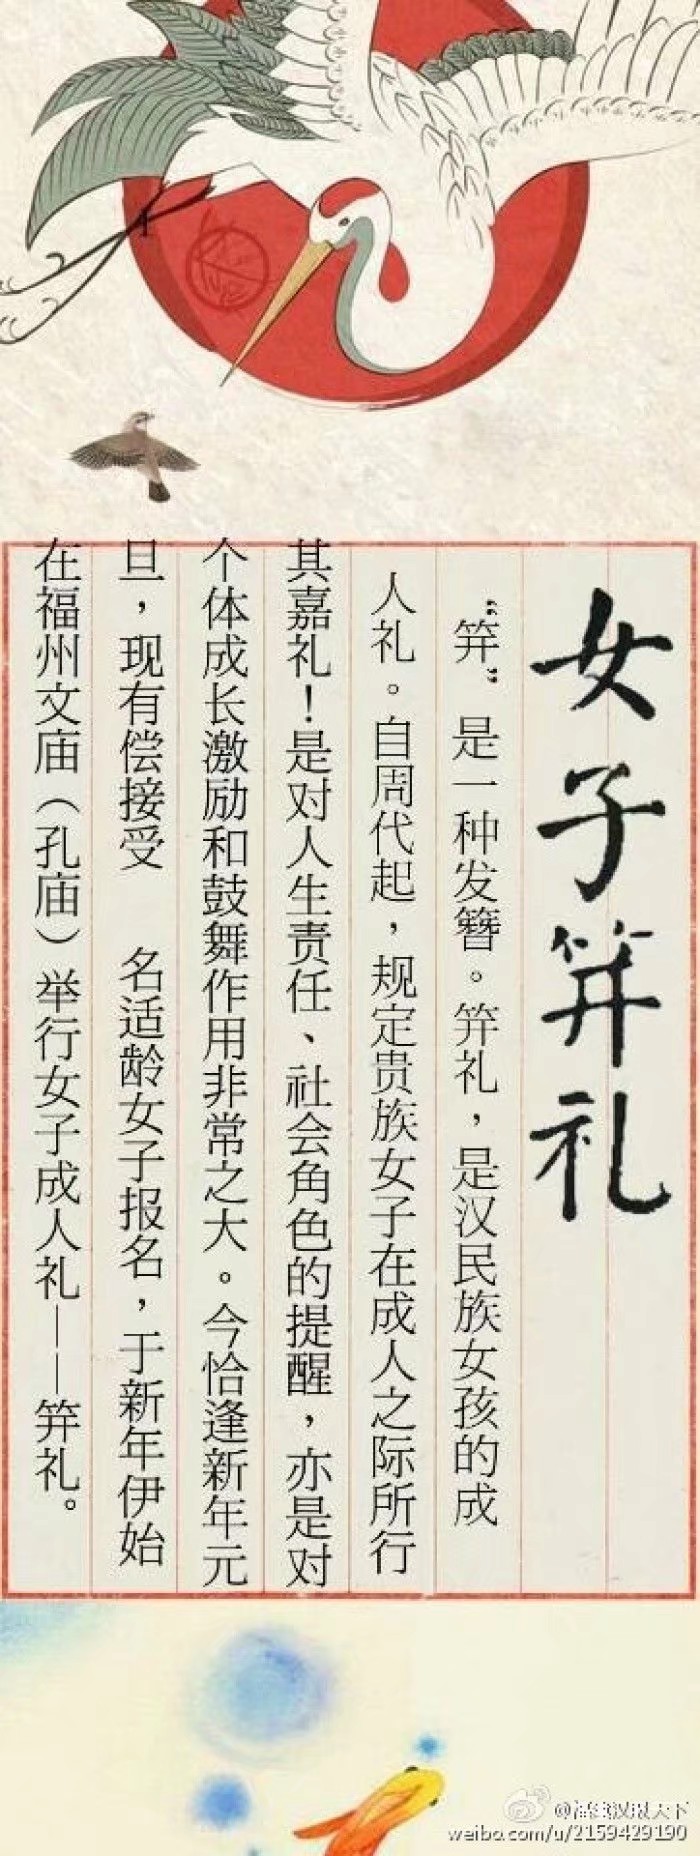 女子笄礼
“笄”是一种发簪。笄礼，是汉民族女孩的成
人礼。自周代起，规定贵族女子在成人之际所行
其嘉礼！是对人生责任、社会角色的提醒，亦是对
个体成长激励和鼓舞作用非常之大。今恰逢新年元
旦，现有偿接受 名适龄女子报名，于新年伊始
在福州文庙（孔庙）举行女子成人礼——笄礼。
汉服天下
weibo.com/u/2159429190